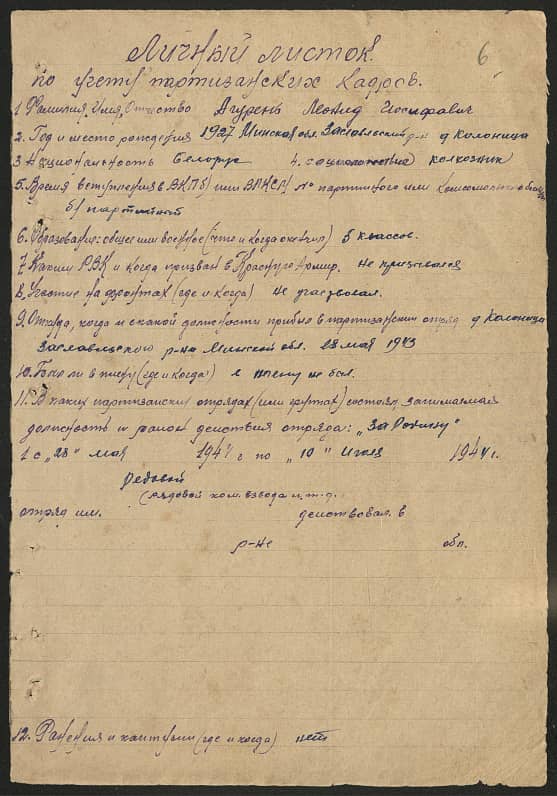 6
Личный листок
по учету партизанских кадров.
1. Фамилия, Имя, Отчество Агурень Леонид Иосифович
2. Год и место рождения 1927 Минская обл. Заславльский р-н д Колоница
3. Национальность белорус 4. колхозник
5. Время вступления в ВКП(б) или ВЛКСМ № партийного или комсомольского
б/партийност
6. Образование: общее или военное (что и когда окончил) 5 классов.
7. Каким РВК и когда призван в Красную Армию. не призывался
8. Участие на фронтах (где и когда) не участвовал.
9. Откуда, когда и с какой должности прибыл в партизанский отряд д Колоница
Заславльского р-на Минской обл. 28 мая 1943
10. Был ли в плену (где и когда) в плену не был.
11. В каких партизанских отрядах (или группах) состоял занимаемая
должность и район действия отряда: "За Родину"
1 с "28" мая 194 г по "10" Июля 1944 г.
Редовой
(рядовой ком. взвода и.т.д.
отряд им. действовал в
р-не обл.
12. Ранения и контузии (где и когда) нет